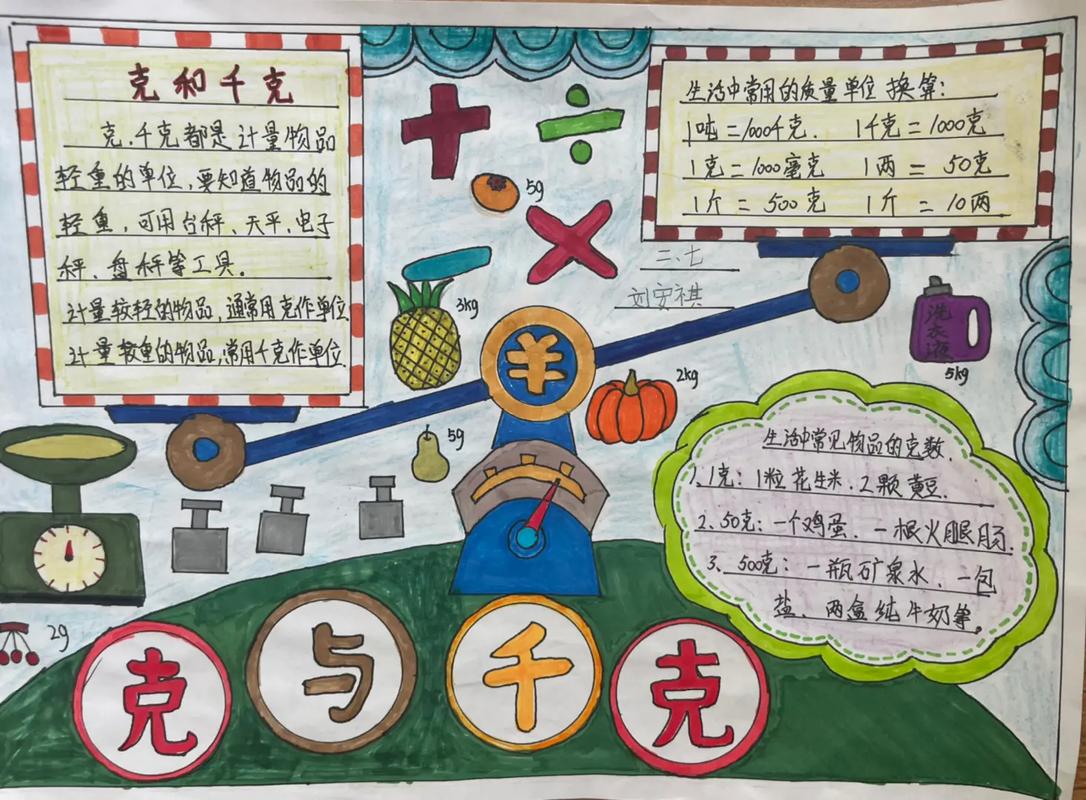 克和千克
克、千克都是计量物品
轻重的单位，要知道物品的
轻重，可用台秤、天平、电子
秤、盘秤等工具。
计量较轻的物品，通常用克作单位
计量较重的物品，常用千克作单位.
生活中常用的质量单位换算：
1吨=1000千克. 1千克=1000克
1克=1000毫克 1两=50克
1斤=500克 1斤=10两
5g
三、七
刘安祺
3kg
¥
洗衣液
5kg
2kg
5g
生活中常见物品的克数.
1、1克：1粒花生米.2颗黄豆.
2、50克：一个鸡蛋.一根火腿肠.
3、500克：一瓶矿泉水.一包
盐、两盒纯牛奶等.
2g
克与千克